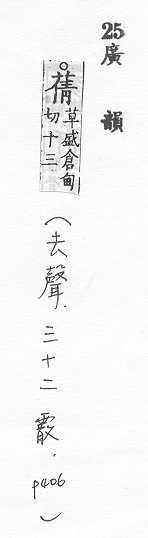 25廣韻
○蒨草盛倉甸切十三
(去聲.三十二霰.p406)